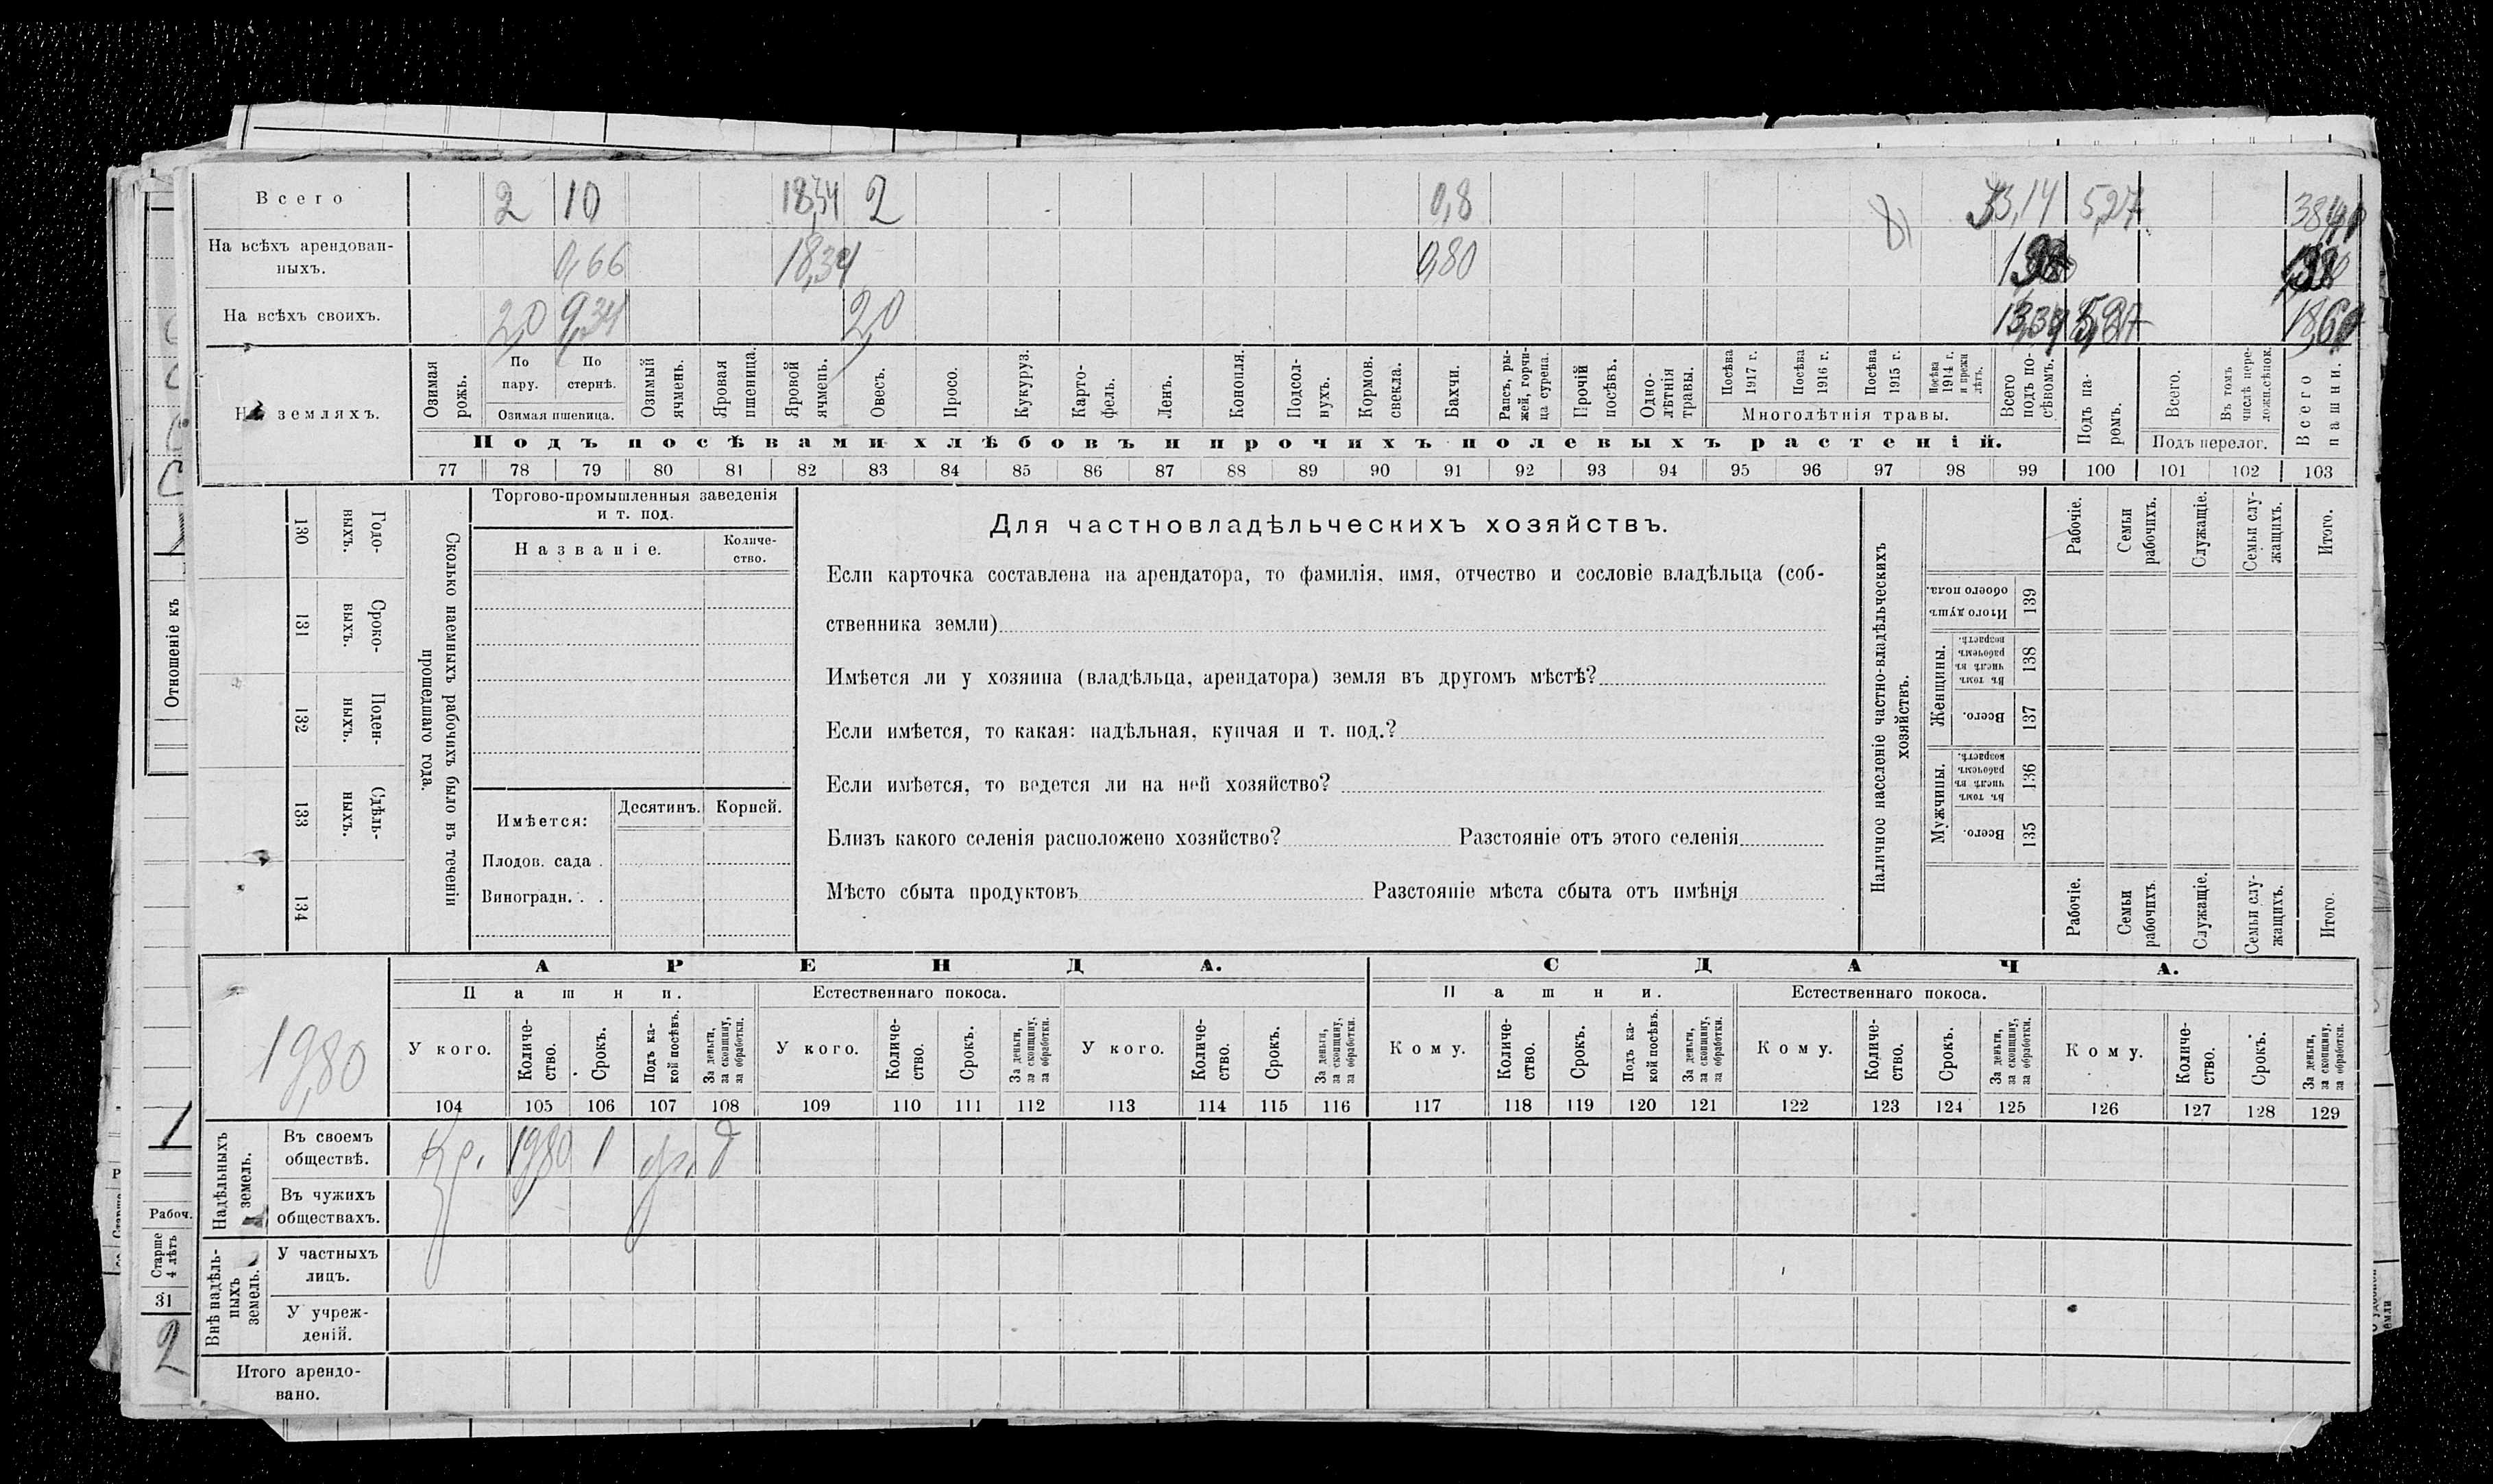 Всего 2 10 18,34 2 0,8 33,14 5,27
На всѣхъ арендован-
ныхъ. 0,66 18,34 0,80
На всѣхъ своихъ. 2,0 9,34 2,0 13,34 5,27
На земляхъ.
Озимая рожь.
По пару.
По стернѣ.
Озимая пшеница.
Озимый ячмень.
Яровая пшеница.
Яровой ячмень.
Овесъ.
Просо.
Кукуруз.
Карто-
фель.
Ленъ.
Конопля.
Подсол-
нухъ.
Кормов.
свекла.
Бахчи.
Рапсъ, ры-
жей, горчи-
ца сурепа.
Прочій
посѣвъ.
Одно-
лѣтнія
травы.
Посѣва
1917 г.
Посѣва
1916 г.
Посѣва
1915 г.
Посѣва
1914 г.
и прежн
лѣтъ.
Многолѣтнія травы.
Всего
подъ по-
сѣвомъ.
Подъ па-
ромъ.
Всего.
Въ томъ
числѣ пере-
ложн.сѣнок.
Подъ перелог.
Всего
пашни.
Подъ посѣвами хлѣбовъ и прочихъ полевыхъ растеній.
77 78 79 80 81 82 83 84 85 86 87 88 89 90 91 92 93 94 95 96 97 98 99 100 101 102 103
130 Годо-
выхъ.
131 Сроко-
выхъ.
132 Поден-
ныхъ.
133 Сдѣль-
ныхъ.
134
Сколько наемныхъ рабочихъ было въ теченіи
прошедшаго года.
Торгово-промышленныя заведенія
и т. под.
Названіе.
Количе-
ство.
Имѣется:
Десятинъ. Корней.
Плодов. сада .
Виноградн. . .
Для частновладѣльческихъ хозяйствъ.
Если карточка составлена на арендатора, то фамилія, имя, отчество и сословіе владѣльца (соб-
ственника земли)
Имѣется ли у хозяина (владѣльца, арендатора) земля въ другомъ мѣстѣ?
Если имѣется, то какая: надѣльная, купчая и т. под.?
Если имѣется, то ведется ли на ней хозяйство?
Близъ какого селенія расположено хозяйство? Разстояніе отъ этого селенія
Мѣсто сбыта продуктовъ Разстояніе мѣста сбыта отъ имѣнія
Наличное населеніе частно-владѣльческихъ
хозяйствъ.
Рабочіе.
Семьи
рабочихъ.
Служащіе.
Семьи слу-
жащихъ.
Итого.
Итого душъ
обоего пола. 139
Женщины.
Въ томъ
числѣ въ
рабочемъ
возрастѣ. 138
Всего. 137
Мужчины.
Въ томъ
числѣ въ
рабочемъ
возрастѣ. 136
Всего. 135
Рабочіе.
Семьи
рабочихъ.
Служащіе.
Семьи слу-
жащихъ.
Итого.
19,80
АРЕНДА. СДАЧА.
Пашни. Естественнаго покоса. Пашни. Естественнаго покоса.
У кого.
Количе-
ство.
Срокъ.
Подъ ка-
кой посѣвъ.
За деньги,
за скопщину,
за обработки.
У кого.
Количе-
ство.
Срокъ.
За деньги,
за скопщину,
за обработки.
У кого.
Количе-
ство.
Срокъ.
За деньги,
за скопщину,
за обработки.
Кому.
Количе-
ство.
Срокъ.
Подъ ка-
кой посѣвъ.
За деньги,
за скопщину,
за обработки.
Кому.
Количе-
ство.
Срокъ.
За деньги,
за скопщину,
за обработки.
Кому.
Количе-
ство.
Срокъ.
За деньги,
за скопщину,
за обработки.
104 105 106 107 108 109 110 111 112 113 114 115 116 117 118 119 120 121 122 123 124 125 126 127 128 129
Надѣльныхъ
земель.
Въ своемъ
обществѣ. Кр. 1980 1 д
Въ чужихъ
обществахъ.
Внѣ надѣль-
ныхъ
земель.
У частныхъ
лицъ.
У учреж-
деній.
Итого арендо-
вано.
Отношеніе къ
Рабоч.
Старше
4 лѣтъ
31
2